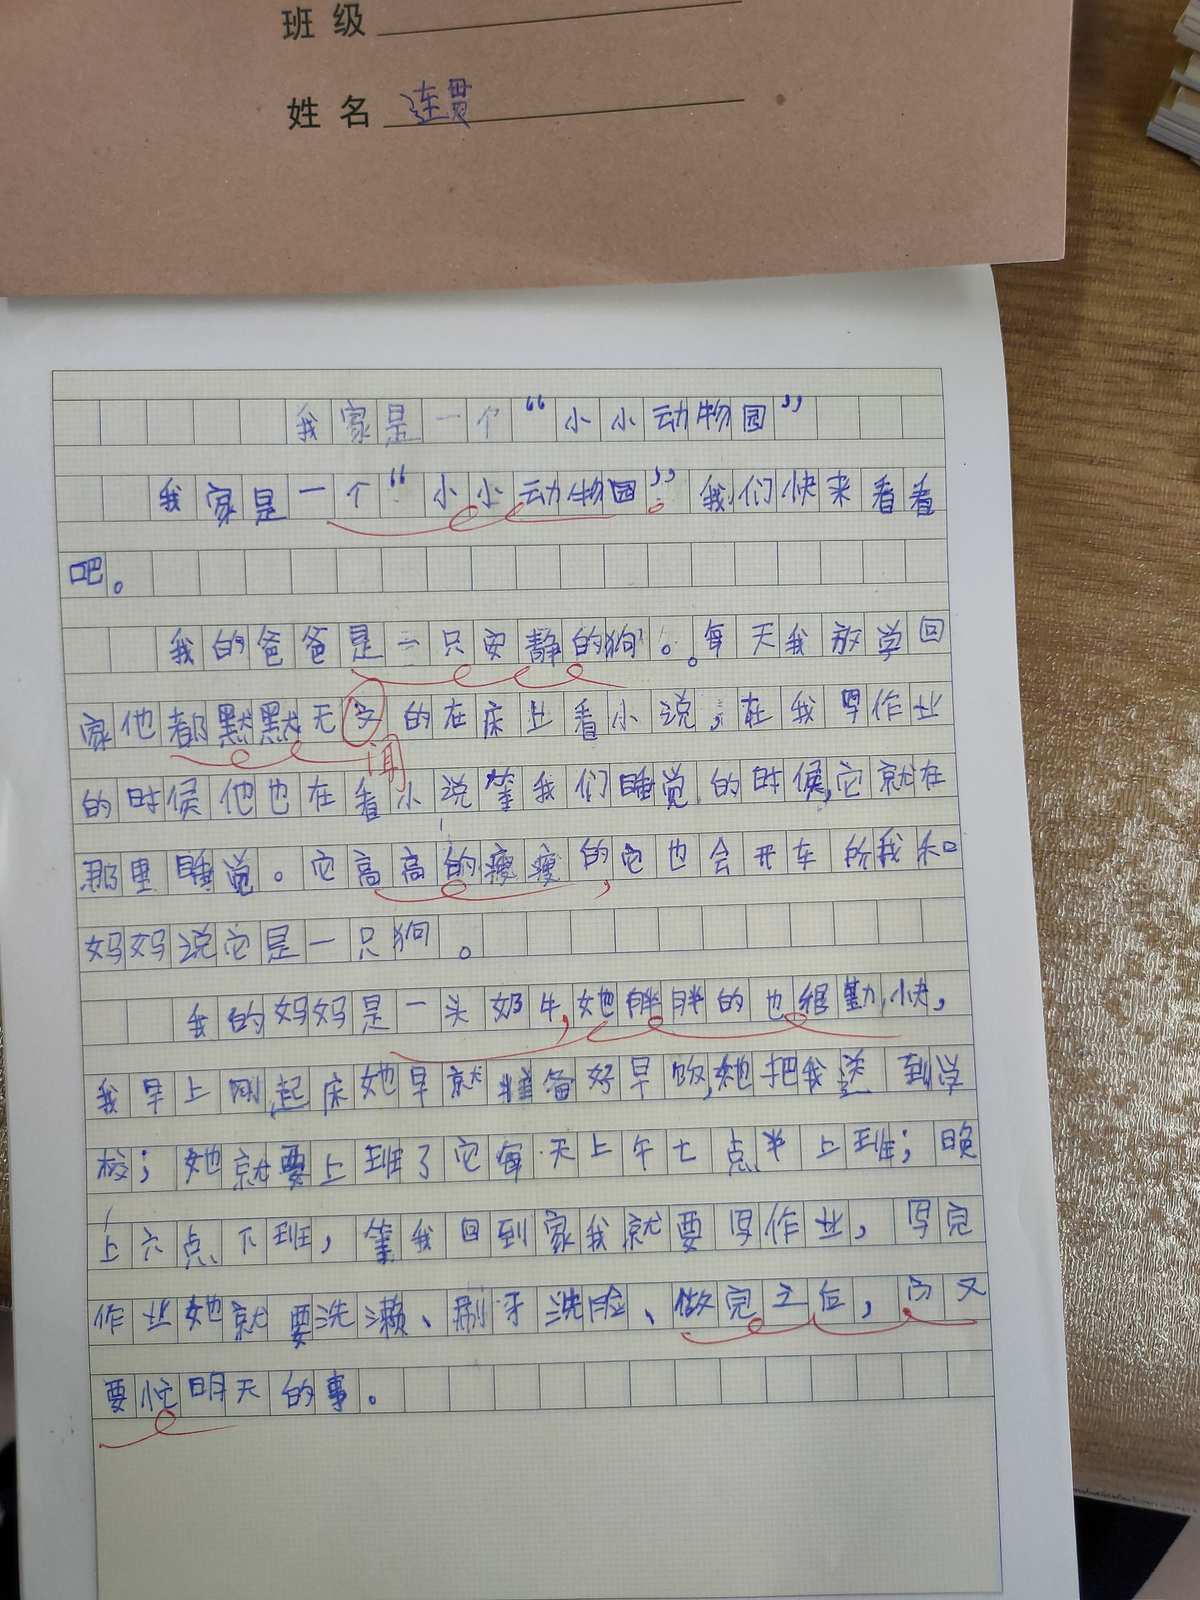 班级
姓名 连贯
我家是一个“小小动物园”
我家是一个“小小动物园”。我们快来看看
吧。
我的爸爸是一只安静的狗。每天我放学回
家他都默默无文的在床上看小说,在我写作业
闻
的时候他也在看小说等我们睡觉的时候,它就在
那里睡觉。它高高的瘦瘦的,它也会开车所我和
妈妈说它是一只狗。
我的妈妈是一头奶牛,她胖胖的也很勤快,
我早上刚起床她早就准备好早饭,她把我送到学
校;她就要上班了它每天上午七点半上班;晚
上六点下班,等我回到家我就要写作业,写完
作业她就要洗漱、刷牙洗脸、做完之后,又
要忙明天的事。